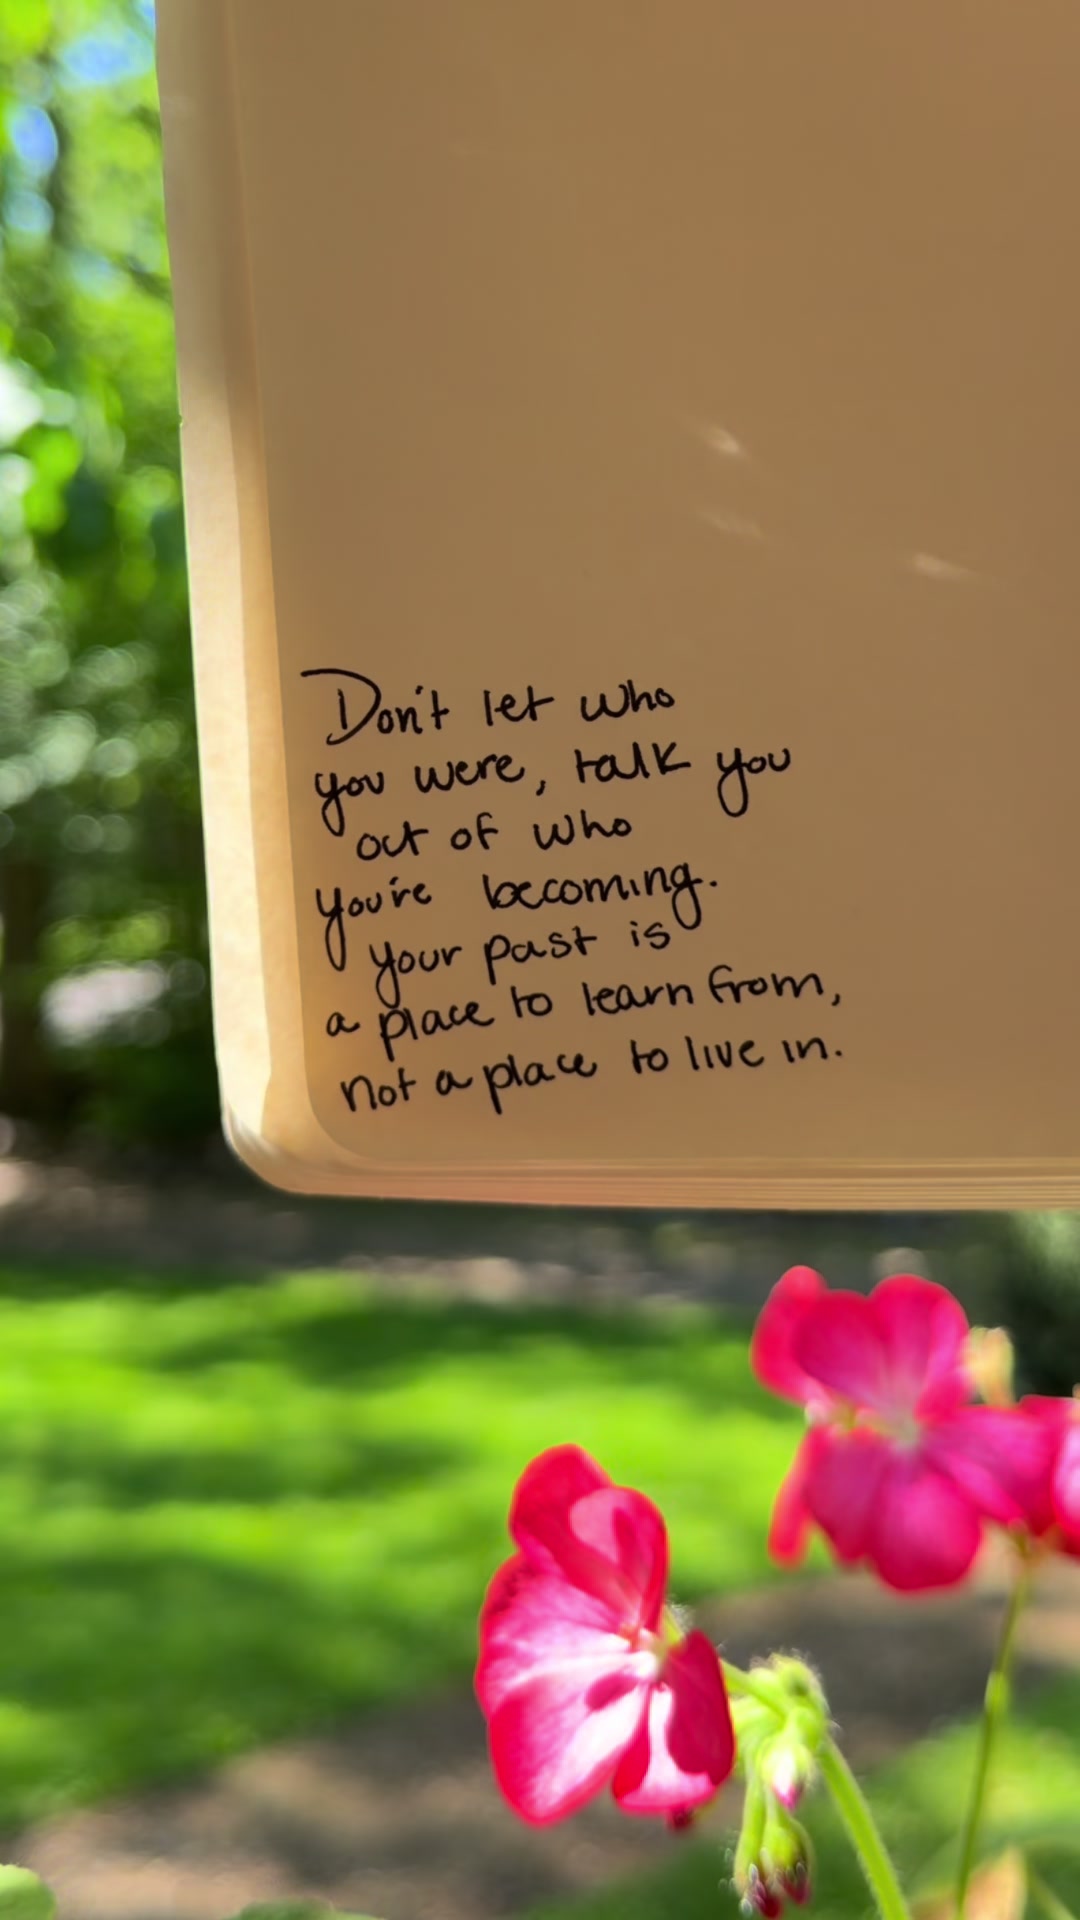 Don't let who
you were, talk you
out of who
you're becoming.
your past is
a place to learn from,
not a place to live in.